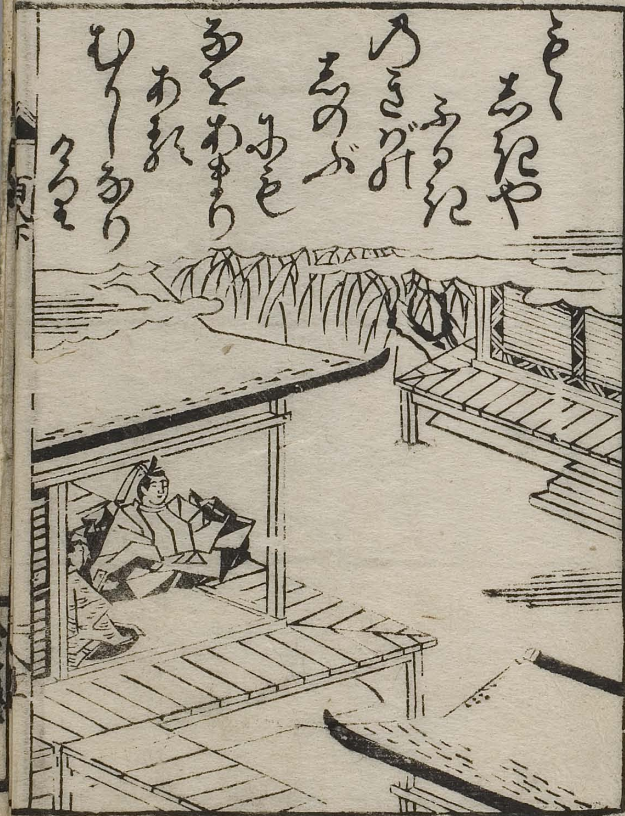 もゝ
しきや
ふるき
のきばの
しのぶ
にも
なをあまり
ある
むかしなり
けり